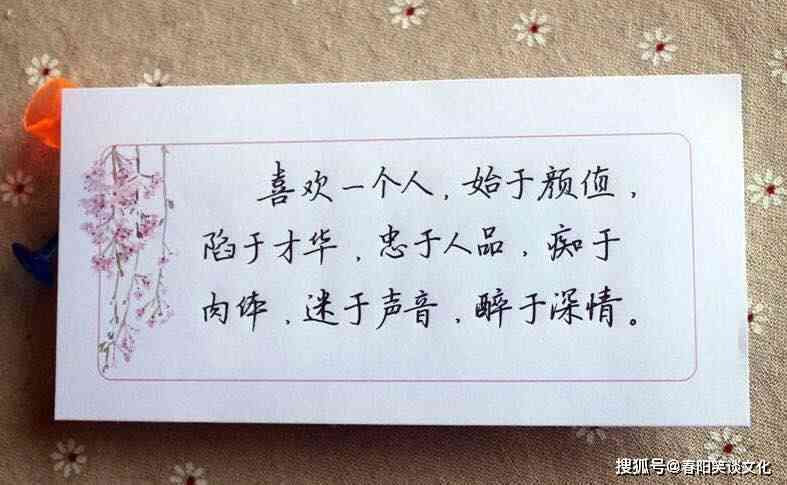 喜欢一个人，始于颜值，
陷于才华，忠于人品，痴于
肉体，迷于声音，醉于深情。
搜狐号@春阳笑谈文化